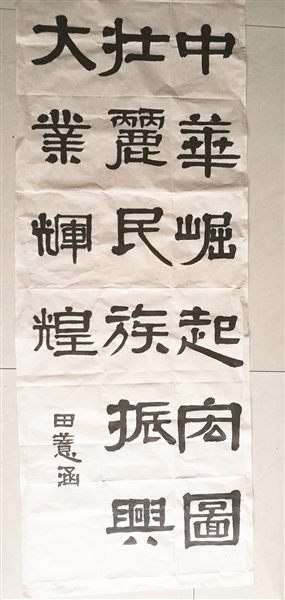 中華崛起宏圖
壮麗民族振興
大業輝煌
田薏涵